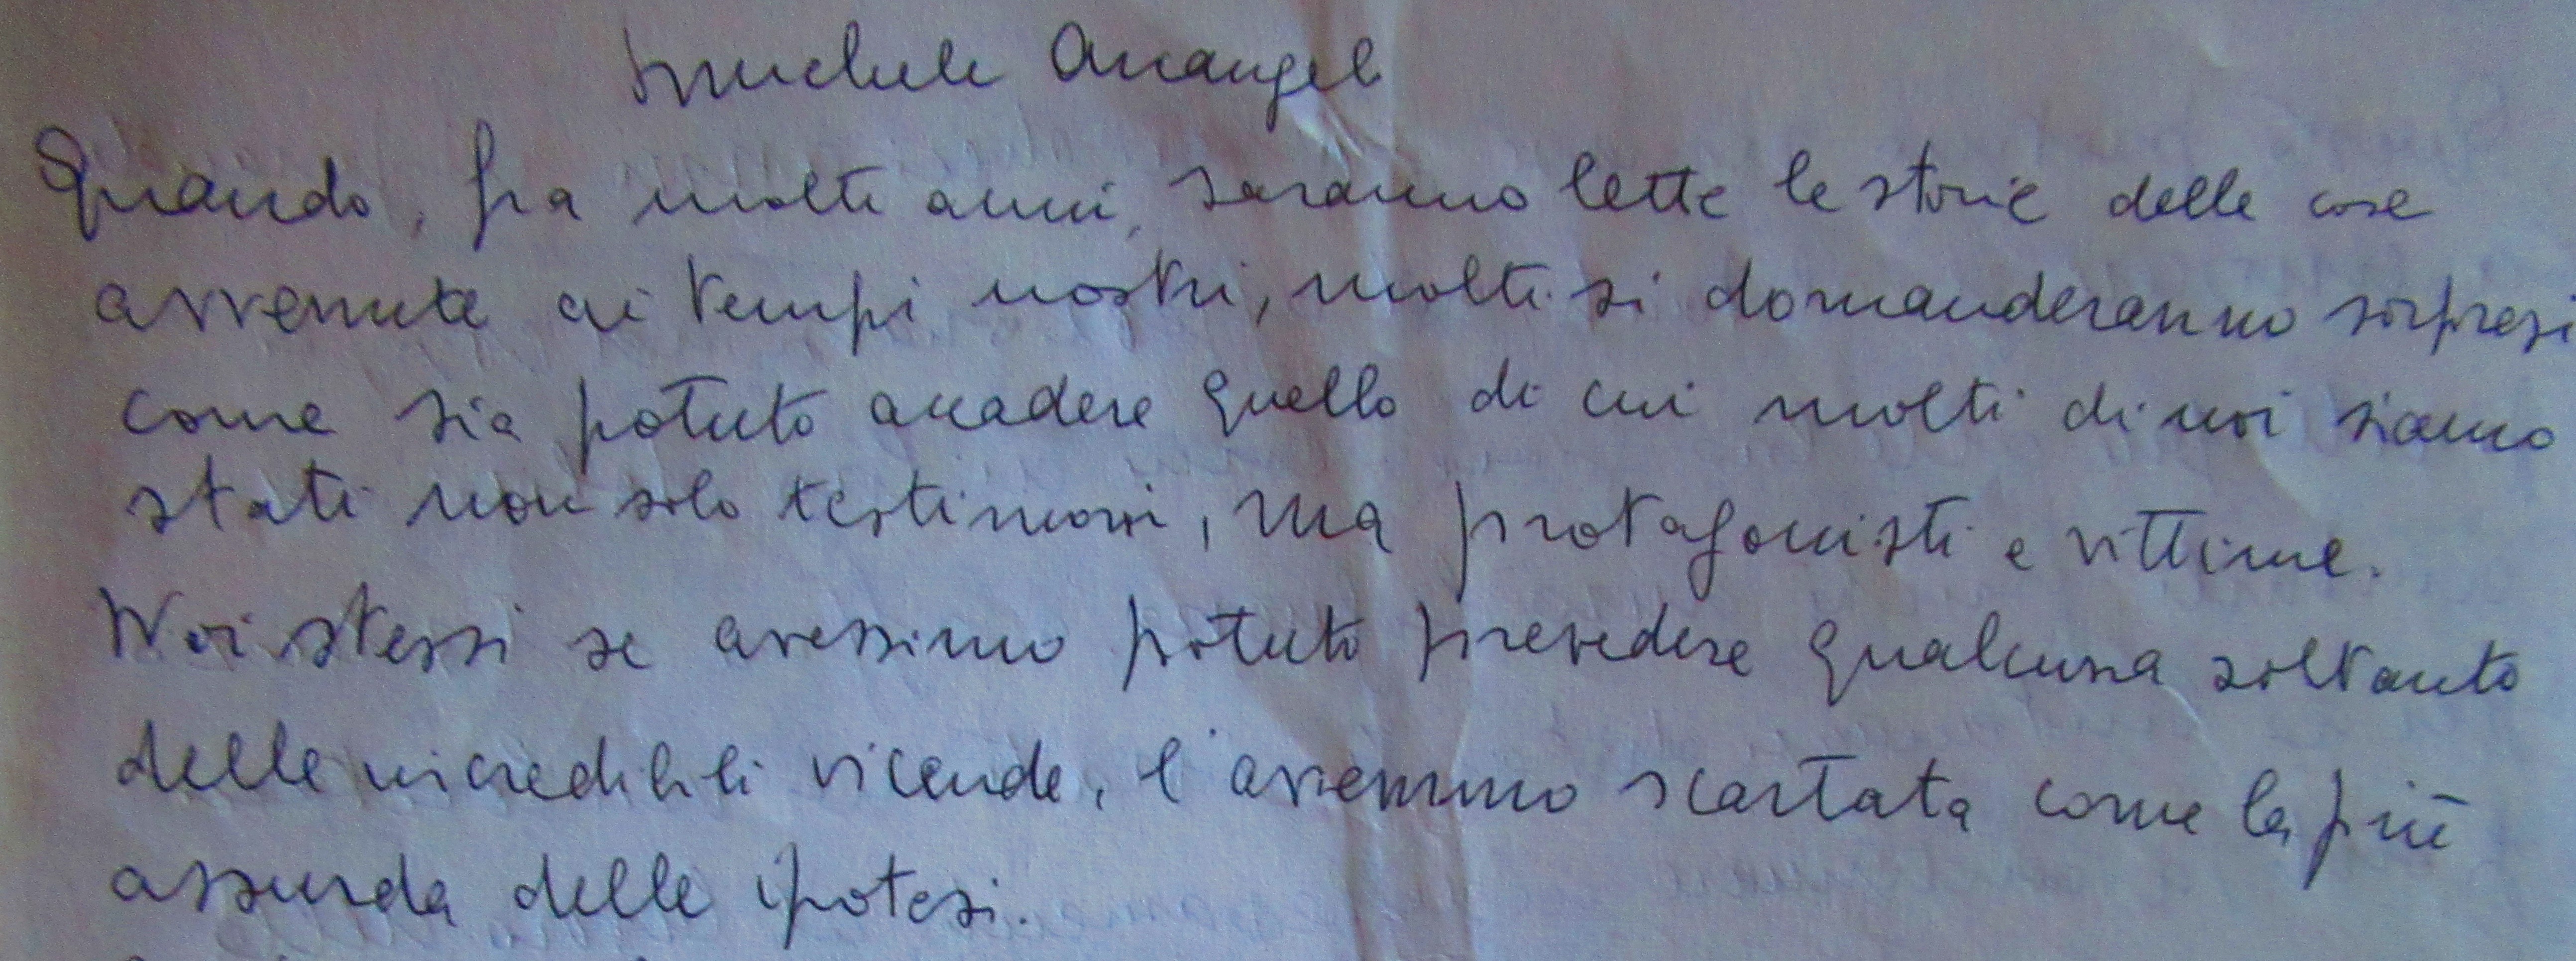 S. Michele Arcangelo
Quando, fra molti anni, saranno lette le storie delle cose
avvenute ai tempi nostri, molti si domanderanno sorpresi
come sia potuto accadere quello di cui molti di noi siamo
stati non solo testimoni, ma protagonisti e vittime.
Noi stessi se avessimo potuto prevedere qualcuna soltanto
delle incredibili vicende, l'avremmo scartata come la più
assurda delle ipotesi.